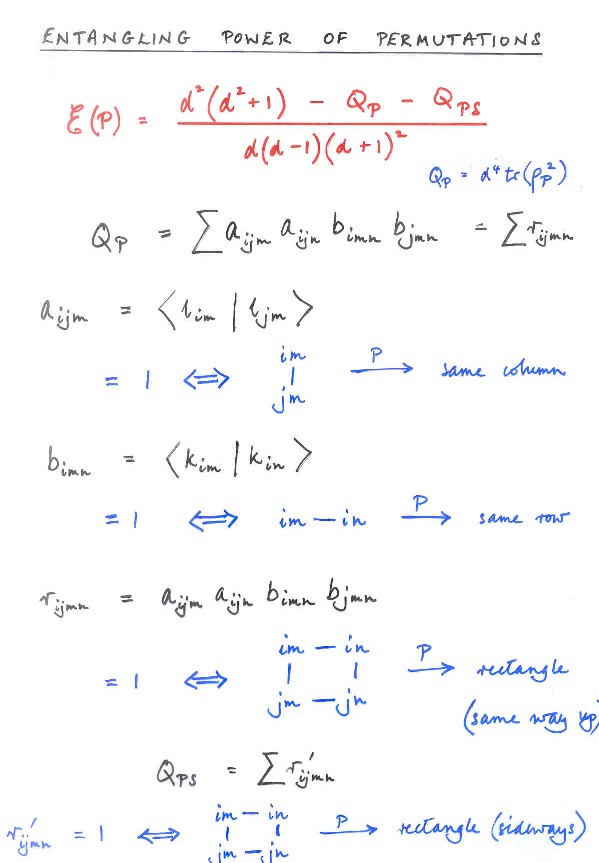 ENTANGLING POWER OF PERMUTATIONS
ℰ(P) = (d²(d²+1) − Q_P − Q_PS) / (d(d−1)(d+1)²)
Q_P = d⁴ tr(ρ_P²)
Q_P = ∑ a_ijm a_ijn b_imn b_jmn = ∑ r_ijmn
a_ijm = ⟨l_im | l_jm⟩
im
= 1 ⟺ | P→ same column
jm
b_imn = ⟨k_im | k_in⟩
= 1 ⟺ im — in P→ same row
r_ijmn = a_ijm a_ijn b_imn b_jmn
im — in
= 1 ⟺ | | P→ rectangle
jm — jn (same way up)
Q_PS = ∑ r′_ijmn
im — in
r′_ijmn = 1 ⟺ | | P→ rectangle (sideways)
jm — jn